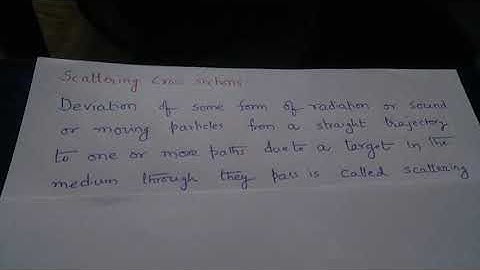 Scattering Cross sections
Deviation of some form of radiation or sound
or moving particles from a straight trajectory
to one or more paths due to a target in the
medium through they pass is called scattering